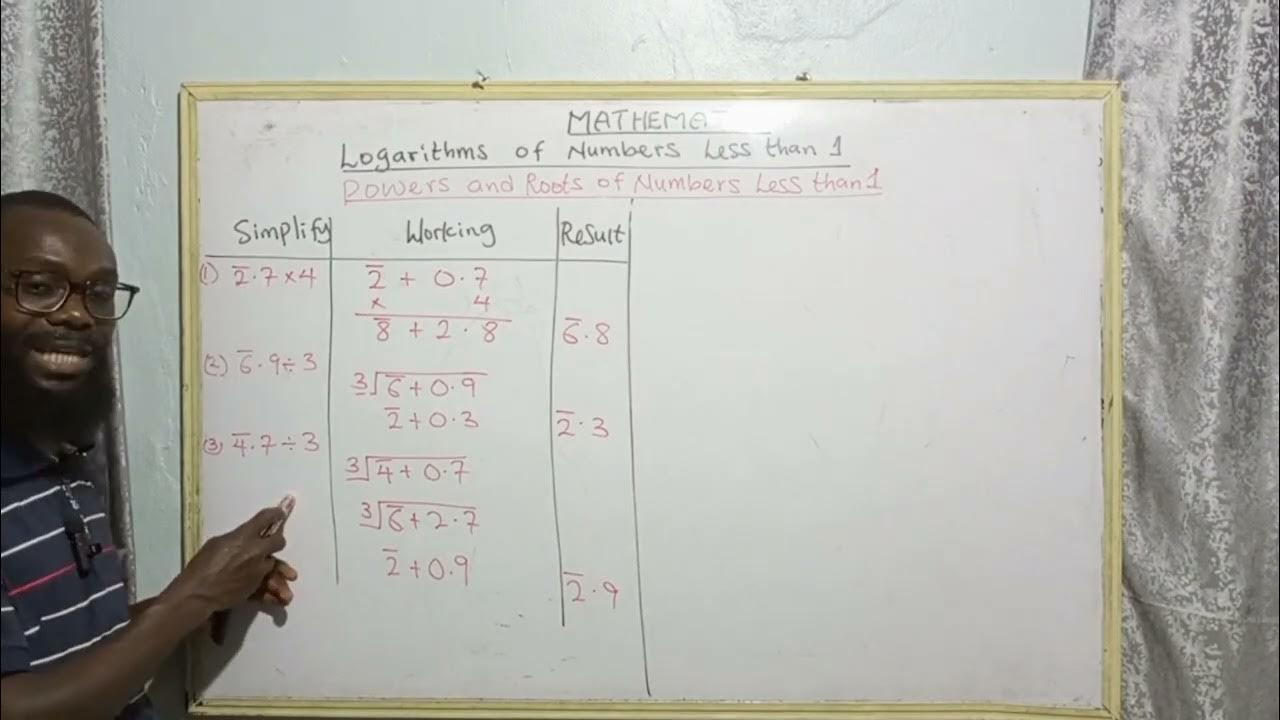 MATHEMA
Logarithms of Numbers Less than 1
Powers and Roots of Numbers Less than 1
Simplify Working Result
(1) 2̅.7 × 4 2̅ + 0.7
× 4
8̅ + 2.8 6̅.8
(2) 6̅.9 ÷ 3 3√6̅ + 0.9
2̅ + 0.3 2̅.3
(3) 4̅.7 ÷ 3 3√4̅ + 0.7
3√6̅ + 2.7
2̅ + 0.9 2̅.9